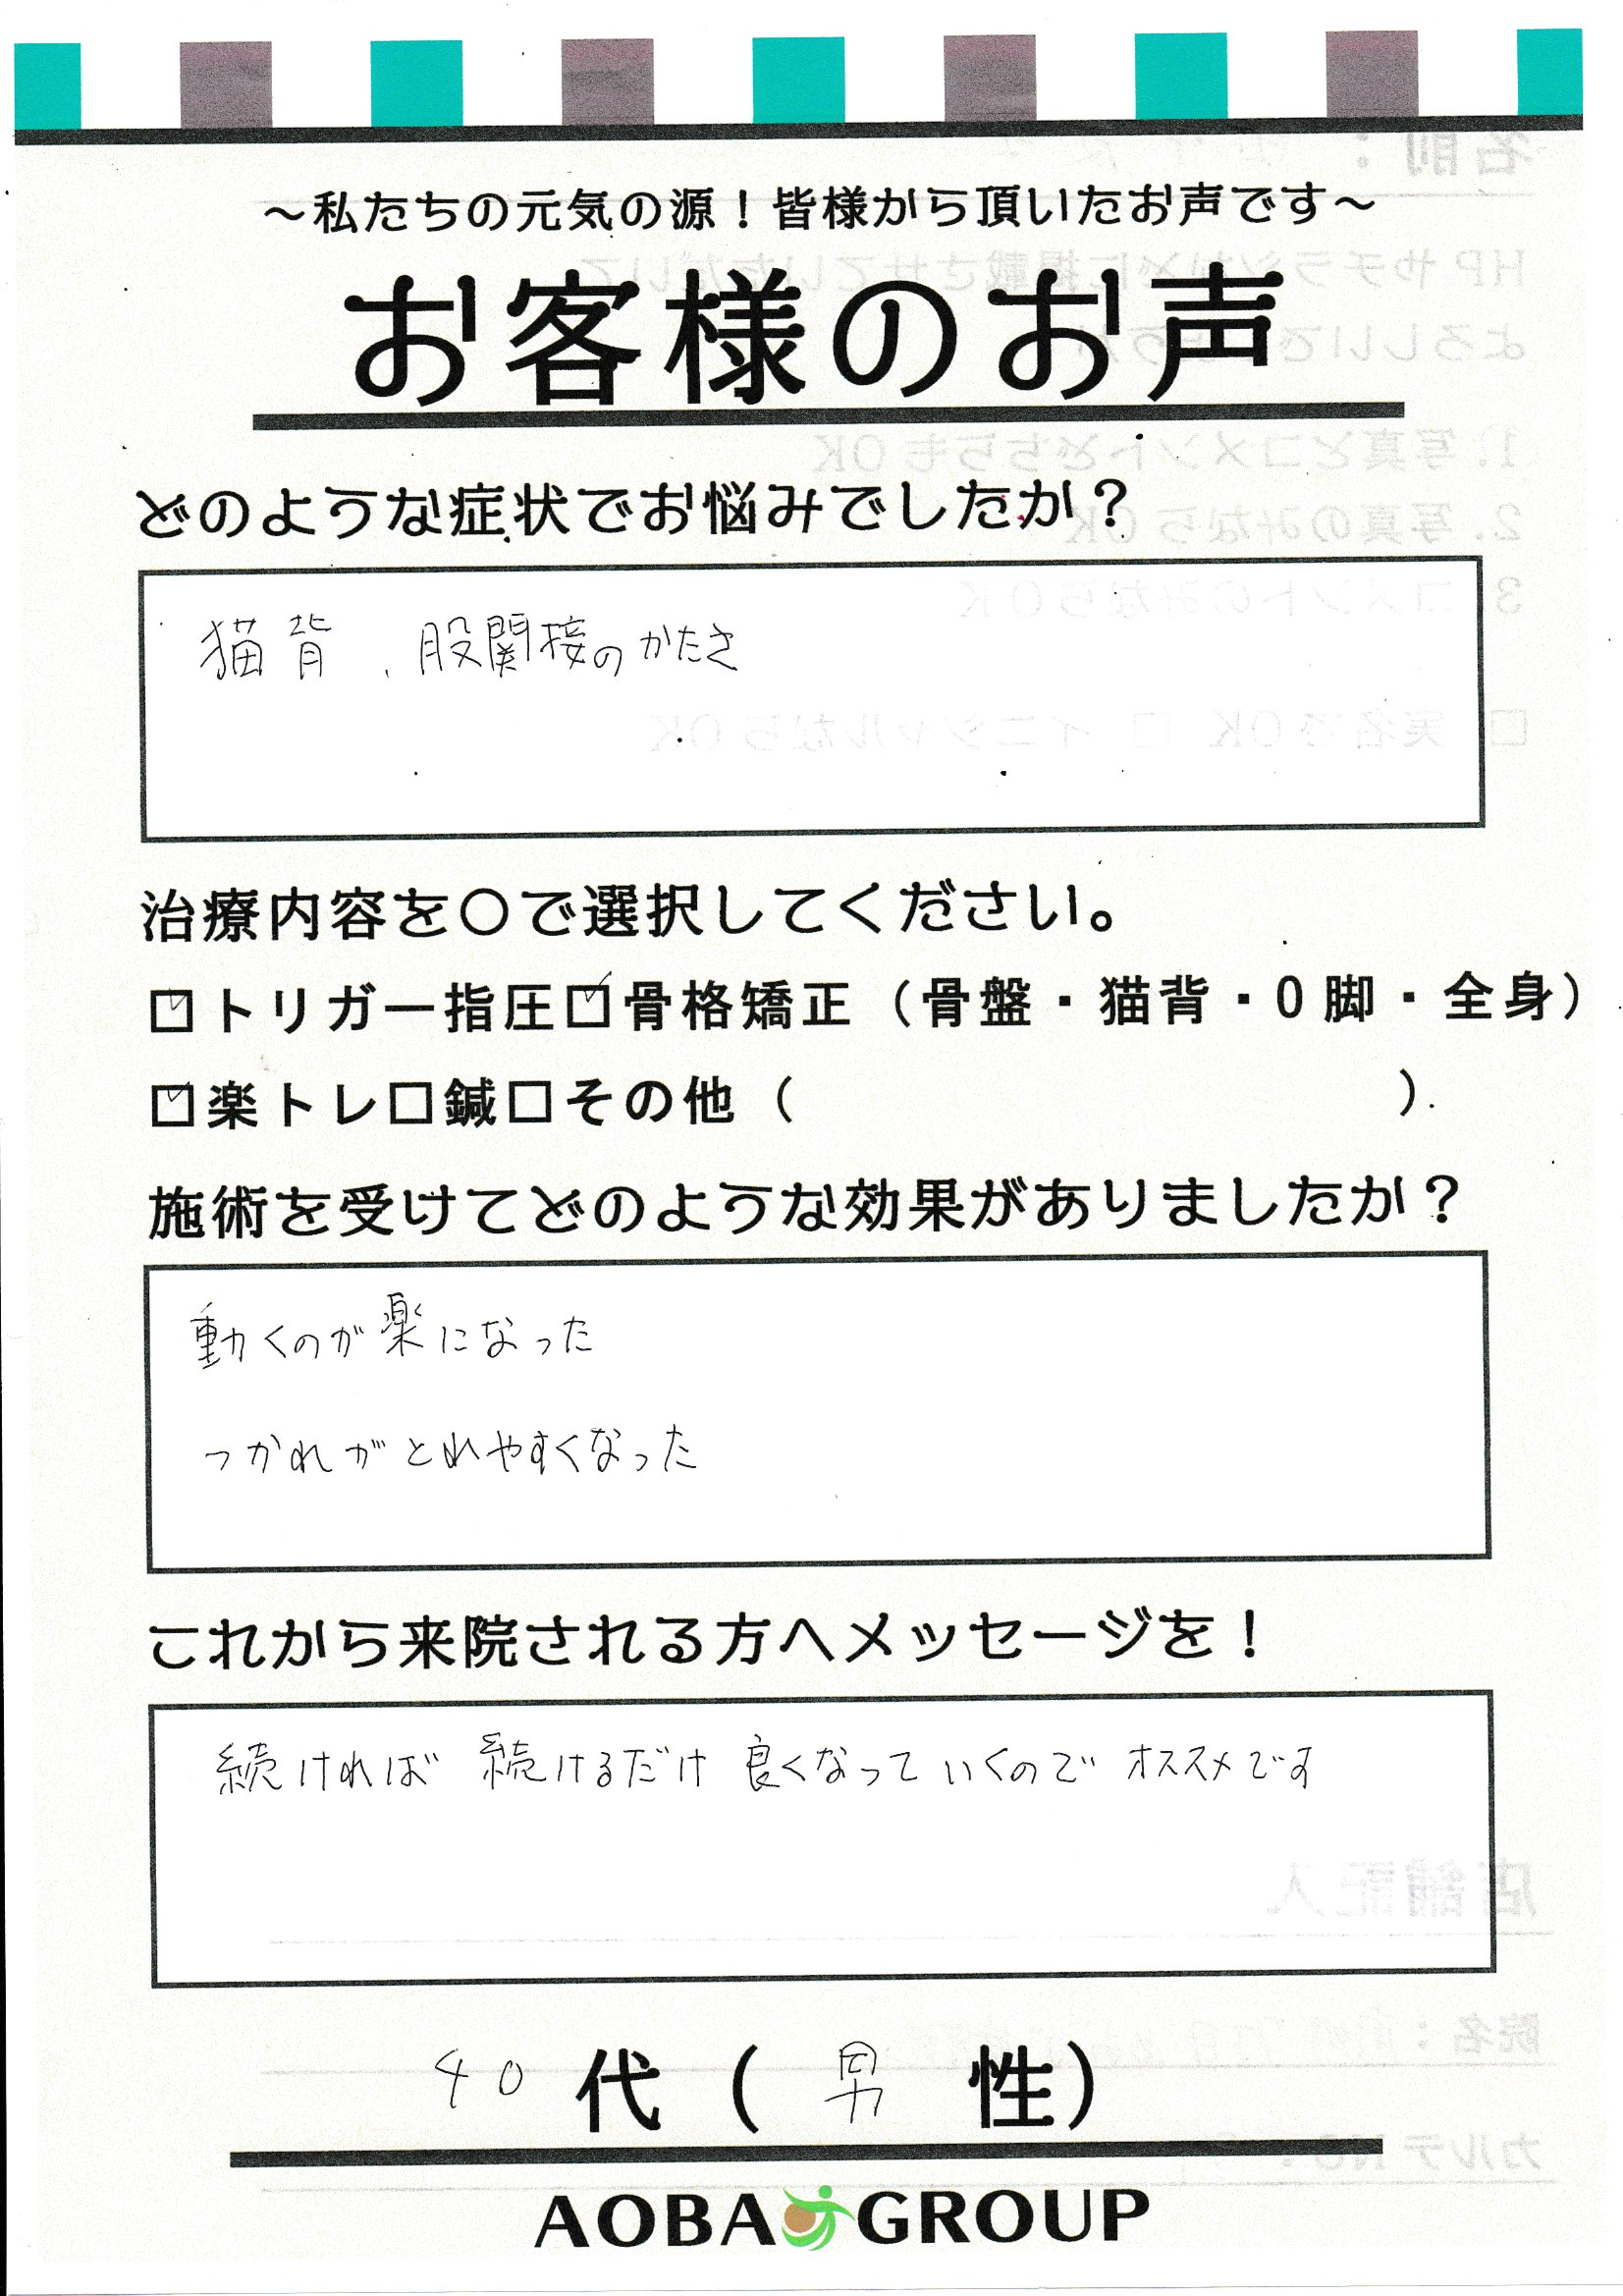 ～私たちの元気の源！皆様から頂いたお声です～
お客様のお声
どのような症状でお悩みでしたか？
猫背、股関接のかたさ
治療内容を〇で選択してください。
☑トリガー指圧☑骨格矯正（骨盤・猫背・O脚・全身）
☑楽トレ□鍼□その他（　　　　　　　　　　）
施術を受けてどのような効果がありましたか？
動くのが楽になった
つかれがとれやすくなった
これから来院される方へメッセージを！
続ければ 続けるだけ 良くなっていくので オススメです
40代（男性）
AOBA GROUP